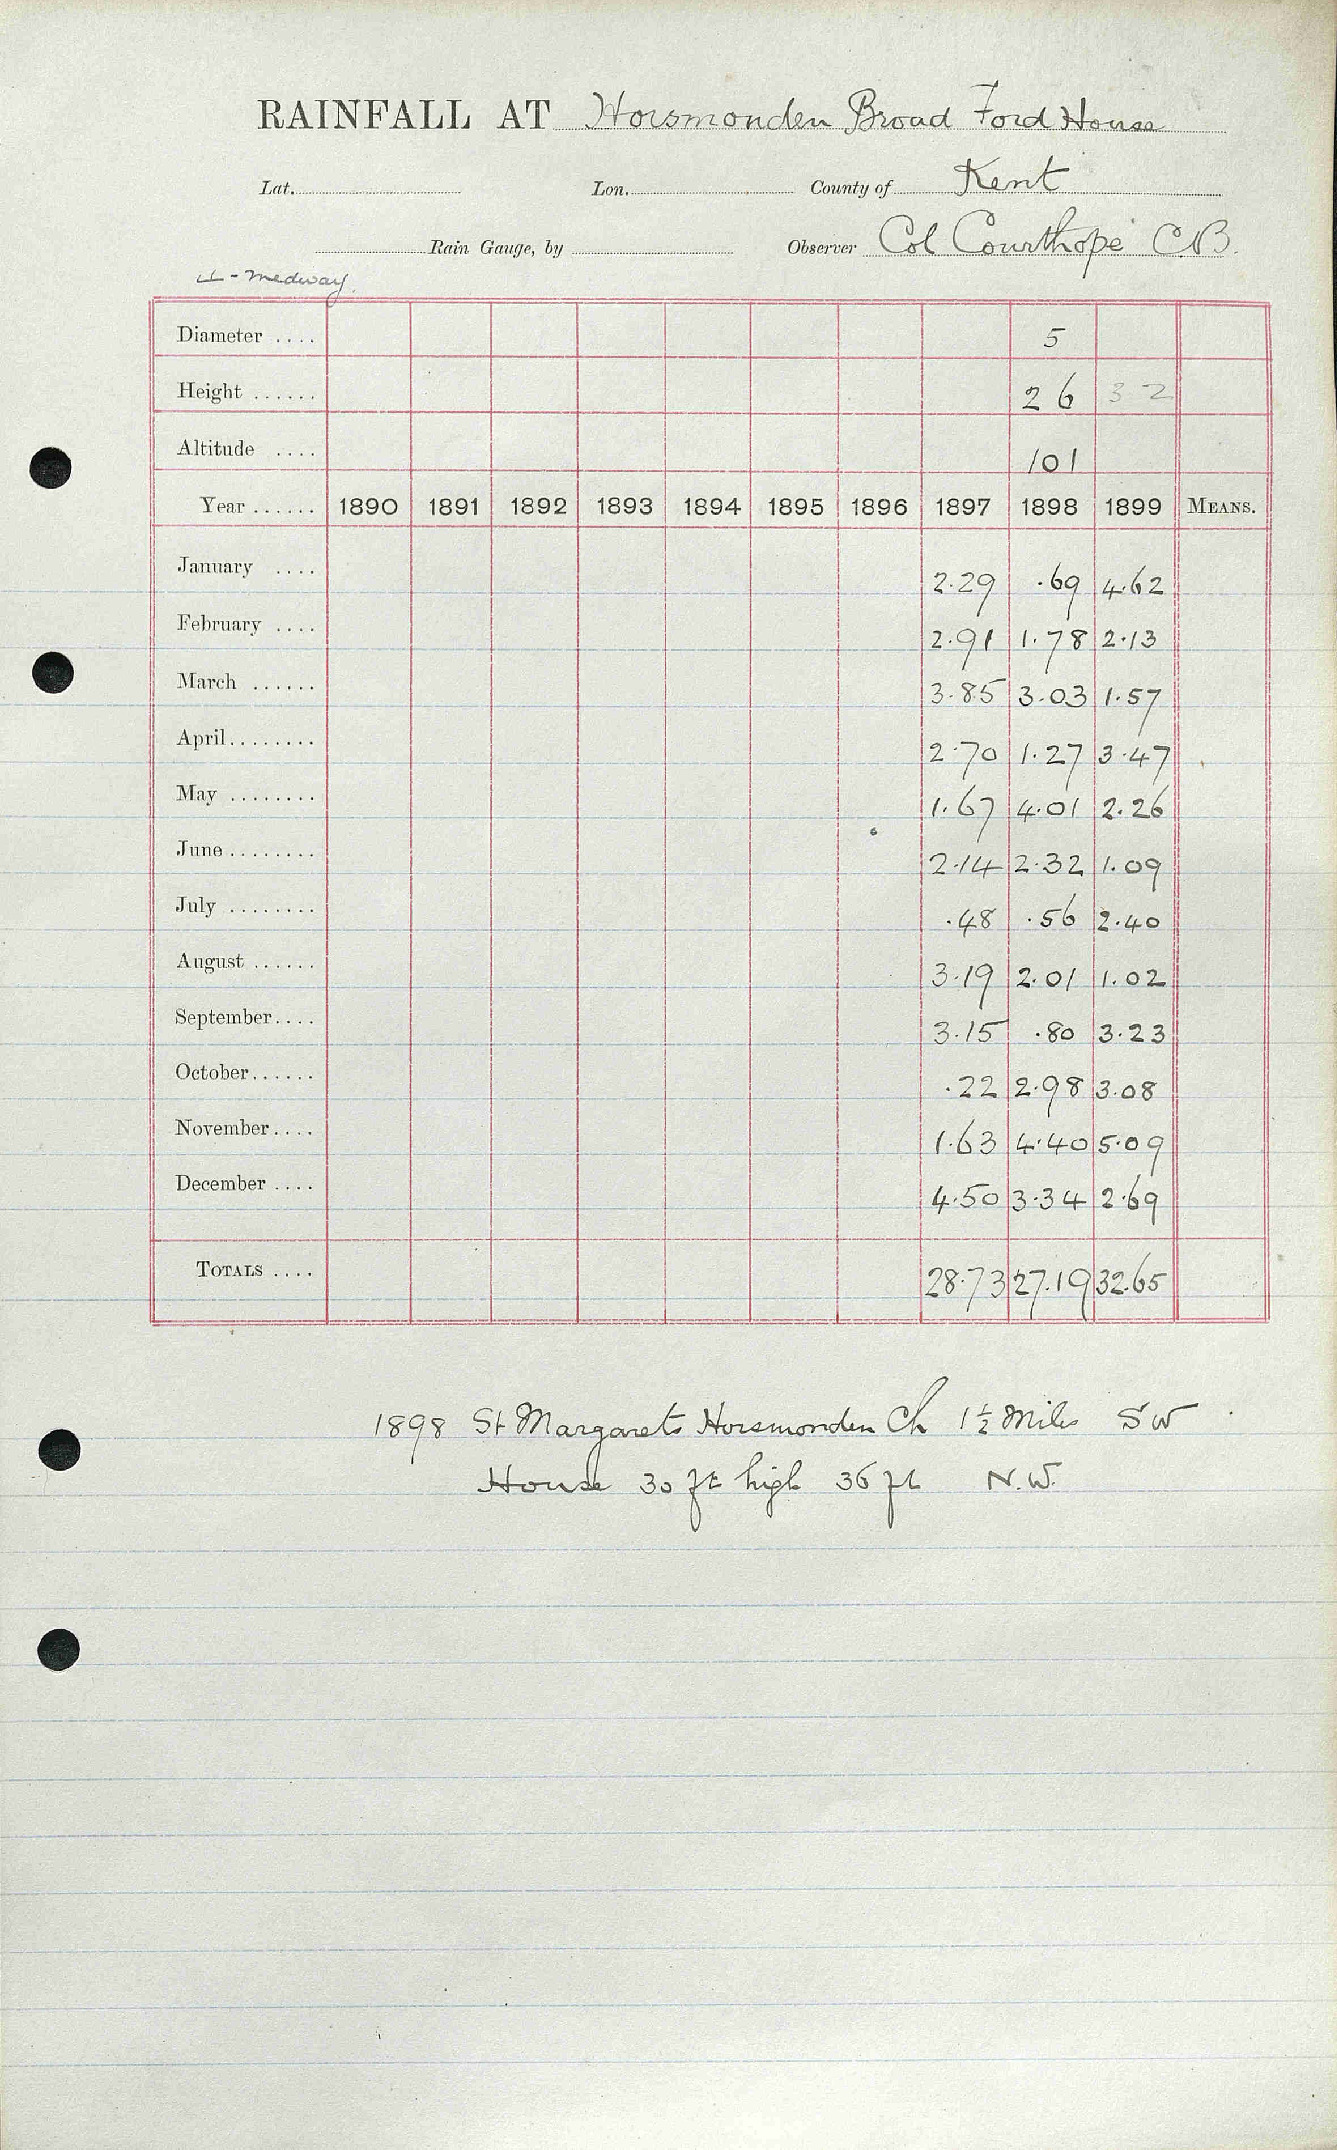 RAINFALL AT Horsmonden Broad Ford House
Lat. Lon. County of Kent
Rain Gauge, by Observer Col Courthope CB.
- Medway.
Diameter .... 5
Height ...... 26 32
Altitude .... 101
Year ...... 1890 1891 1892 1893 1894 1895 1896 1897 1898 1899 MEANS.
January .... 2.29 .69 4.62
February .... 2.91 1.78 2.13
March ...... 3.85 3.03 1.57
April........ 2.70 1.27 3.47
May ........ 1.67 4.01 2.26
June........ 2.14 2.32 1.09
July ........ .48 .56 2.40
August ...... 3.19 2.01 1.02
September.... 3.15 .80 3.23
October...... .22 2.98 3.08
November.... 1.63 4.40 5.09
December .... 4.50 3.34 2.69
TOTALS .... 28.73 27.19 32.65
1898 St Margarets Horsmonden Ch 1½ Miles SW
House 30 ft high 36 ft N.W.